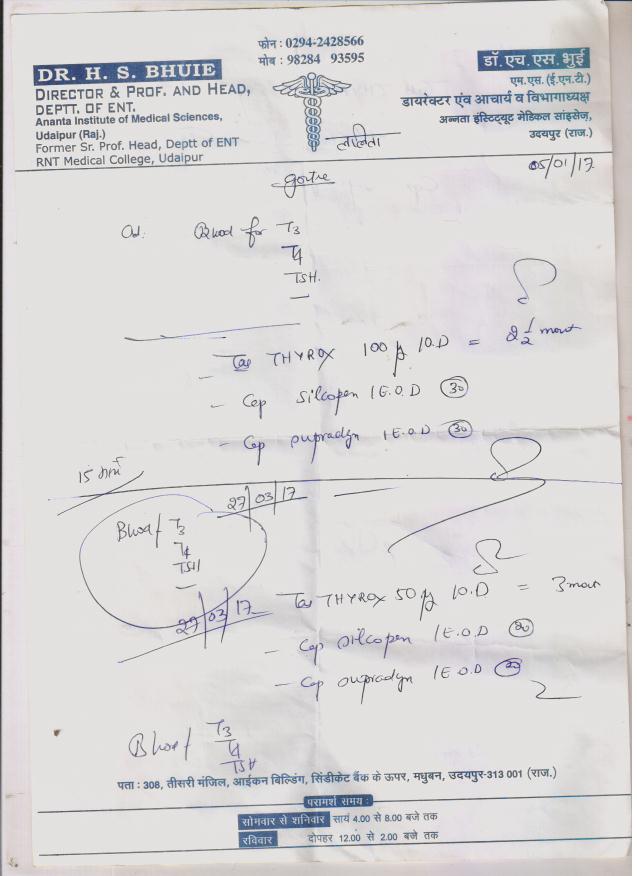 फोन : 0294-2428566
मोब : 98284 93595
DR. H. S. BHUIE
DIRECTOR & PROF. AND HEAD,
DEPTT. OF ENT.
Ananta Institute of Medical Sciences,
Udaipur (Raj.)
Former Sr. Prof. Head, Deptt of ENT
RNT Medical College, Udaipur
डॉ.एच.एस.भुई
एम.एस.(ई.एन.टी.)
डायरेक्टर एंव आचार्य व विभागाध्यक्ष
अन्नता इंस्टिट्यूट मेडिकल सांइसेज,
उदयपुर (राज.)
ललिता
05/01/17
Ad: Blood for T3
T4
TSH.
Tab THYROX 100 µg 1O.D = 2 1/2 mont
- Cap silcopen 1E.O.D 30
- Cap supradyn 1E.O.D 30
27/03/17
T3
T4
TSH
27/03/17
Tab THYROX 50 µg 1O.D = 3 mont
- Cap silcopen 1E.O.D
- Cap supradyn 1E.O.D
T3
T4
TSH
पता : 308, तीसरी मंजिल, आईकन बिल्डिंग, सिंडीकेट बैंक के ऊपर, मधुबन, उदयपुर-313 001 (राज.)
परामर्श समय :
सोमवार से शनिवार सायं 4.00 से 8.00 बजे तक
रविवार दोपहर 12.00 से 2.00 बजे तक